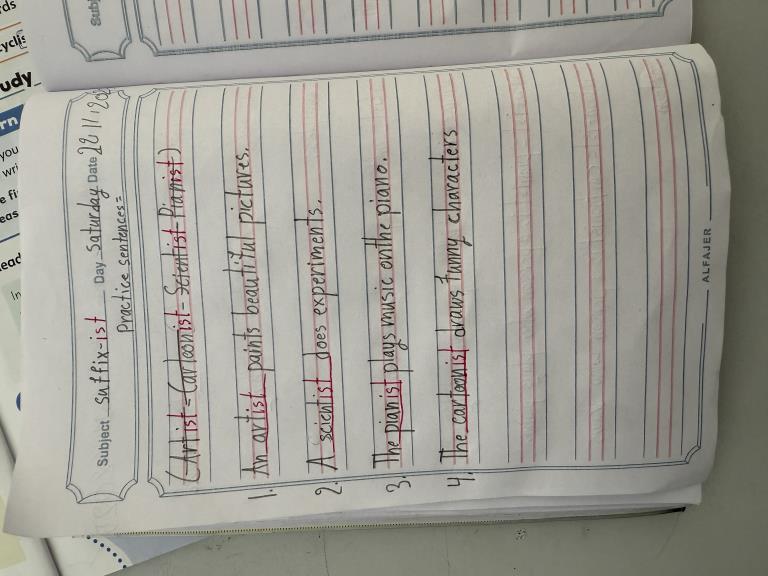 Subject suffix-ist Day Saturday Date 22/11/202
Practice sentences=
(Artist - Cartoonist - Scientist - Pianist)
1. An artist paints beautiful pictures.
2. A scientist does experiments.
3. The pianist plays music on the piano.
4. The cartoonist draws funny characters
ALFAJER